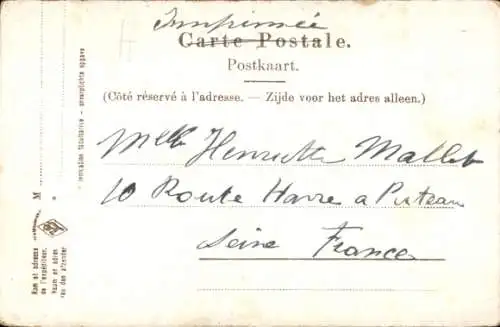 Imprimée
Carte Postale.
Postkaart.
(Côté réservé à l'adresse. — Zijde voor het adres alleen.)
Mlle Henriette Mallet
10 Route Havre a Puteau
Seine France
M
Nom et adresse
de l'expéditeur.
Naam en adres
van den afzender
Indication facultative - onverplichte opgave